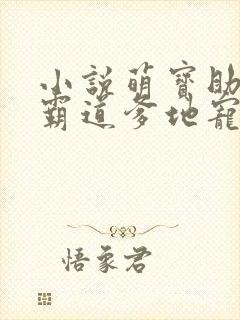 小説萌寶助
霸道爹地寵
悟象君